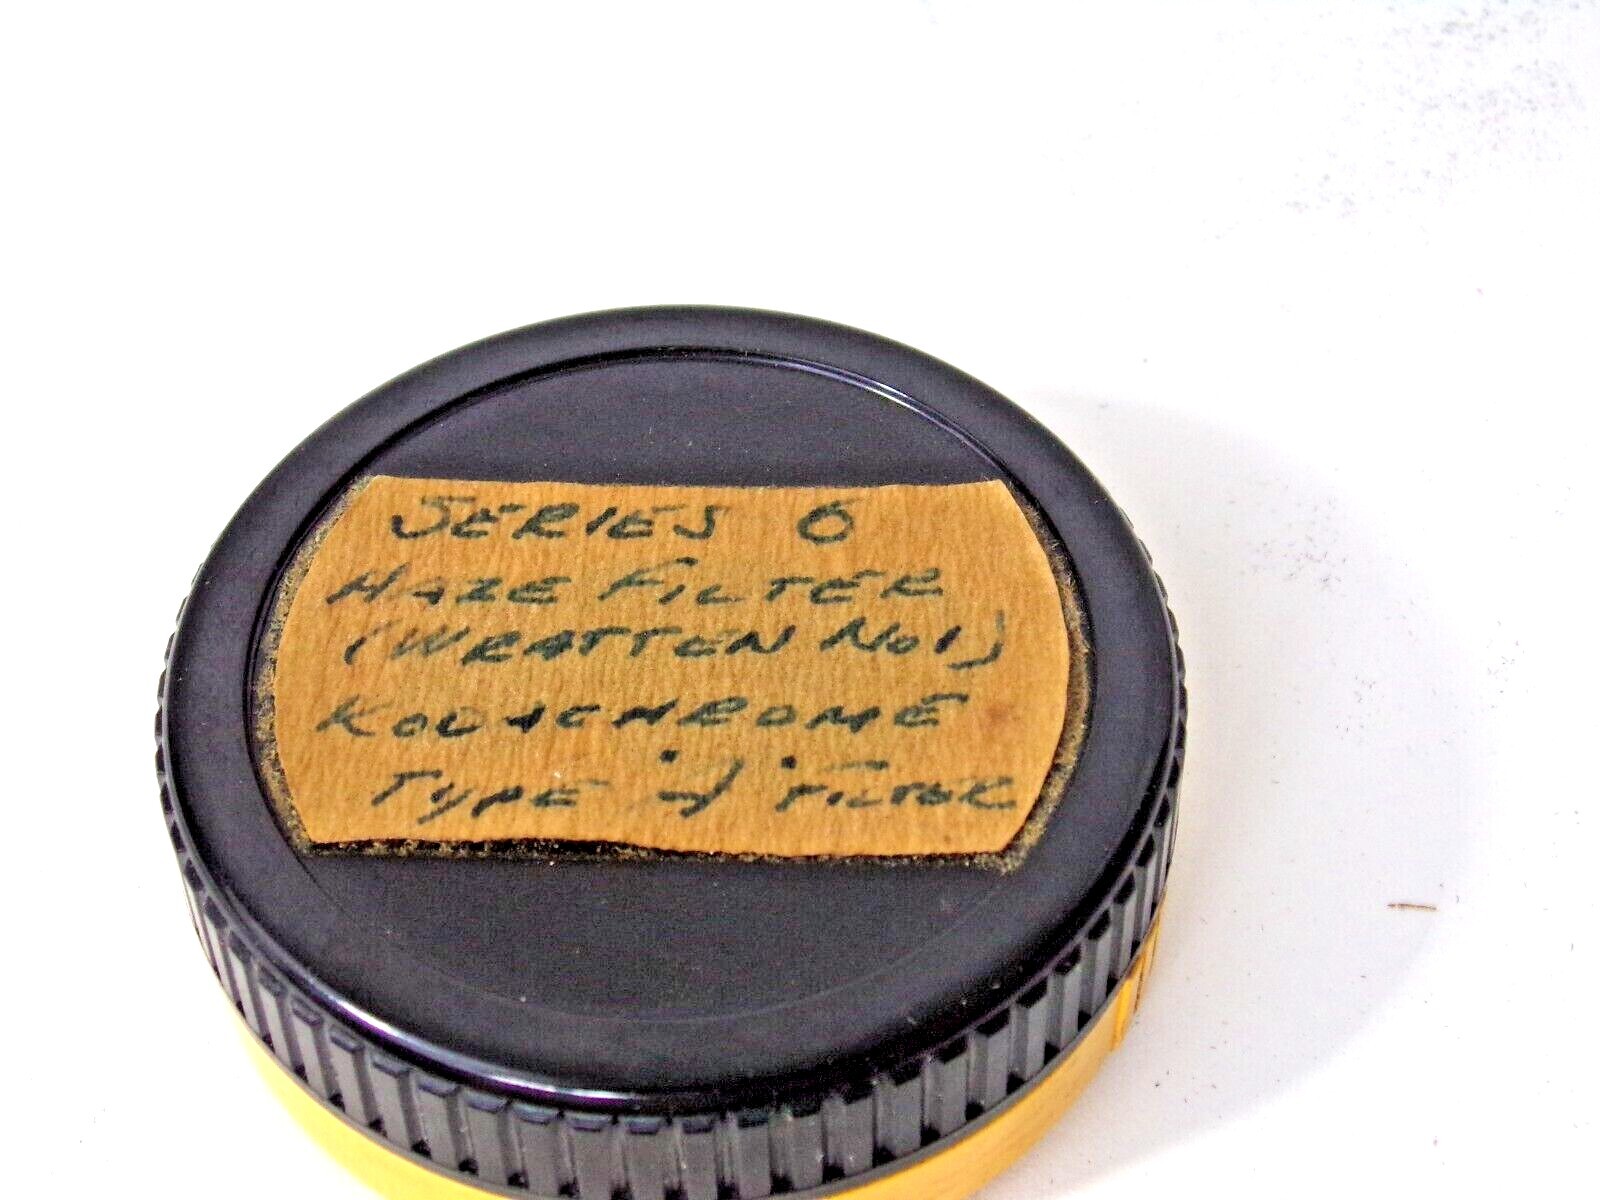 SERIES 6
HAZE FILTER
(WRATTEN No 1)
KODACHROME
TYPE A FILTER